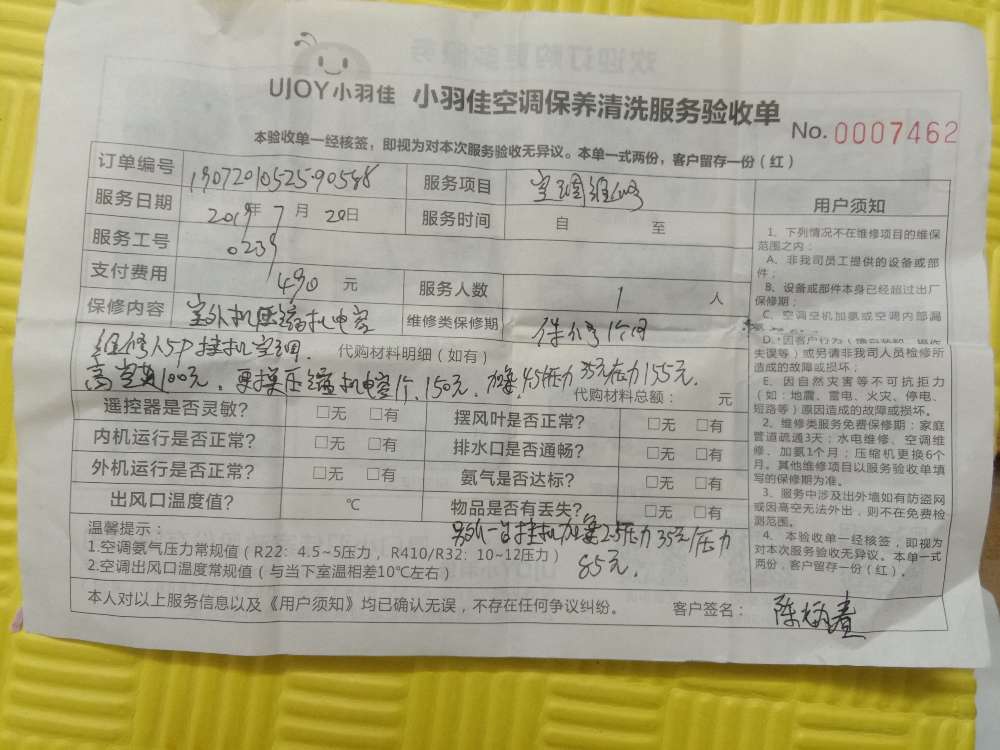 UJOY小羽佳 小羽佳空调保养清洗服务验收单
No. 0007462
本验收单一经核签，即视为对本次服务验收无异议。本单一式两份，客户留存一份（红）
订单编号 19072010525-90588 服务项目 空调维修
服务日期 2019年7月20日 服务时间 自 至
服务工号 0239
支付费用 490 元 服务人数 1 人
保修内容 室外机压缩机电容 维修类保修期 保修1个月
维修1.5P挂机空调. 代购材料明细（如有）
高空费100元. 更换压缩机电容1个, 150元, 加氟4.5压力 35元/压力 155元.
代购材料总额： 元
遥控器是否灵敏? □无 □有 摆风叶是否正常? □无 □有
内机运行是否正常? □无 □有 排水口是否通畅? □无 □有
外机运行是否正常? □无 □有 氨气是否达标? □无 □有
出风口温度值? ℃ 物品是否有丢失? □无 □有
另外一台挂机加氟2.5压力 35元/压力
85元.
温馨提示：
1.空调氨气压力常规值（R22: 4.5~5压力，R410/R32: 10~12压力）
2.空调出风口温度常规值（与当下室温相差10℃左右）
本人对以上服务信息以及《用户须知》均已确认无误，不存在任何争议纠纷。 客户签名：
用户须知
1、下列情况不在维修项目的维保
范围之内：
A、非我司员工提供的设备或部
件；
B、设备或部件本身已经超过出厂
保修期；
C、空调空机加氨或空调内部漏
D、因客户行为
失误等）或另请非我司人员检修所
造成的故障或损坏；
E、因自然灾害等不可抗拒力
（如：地震、雷电、火灾、停电、
短路等）原因造成的故障或损坏。
2、维修类服务免费保修期：家庭
管道疏通3天；水电维修、空调维
修、加氨1个月；压缩机更换6个
月。其他维修项目以服务验收单填
写的保修期为准。
3、服务中涉及出外墙如有防盗网
或因高空无法外出，则不在免费检
测范围。
4、本验收单一经核签，即视为
对本次服务验收无异议。本单一式
两份，客户留存一份（红）。